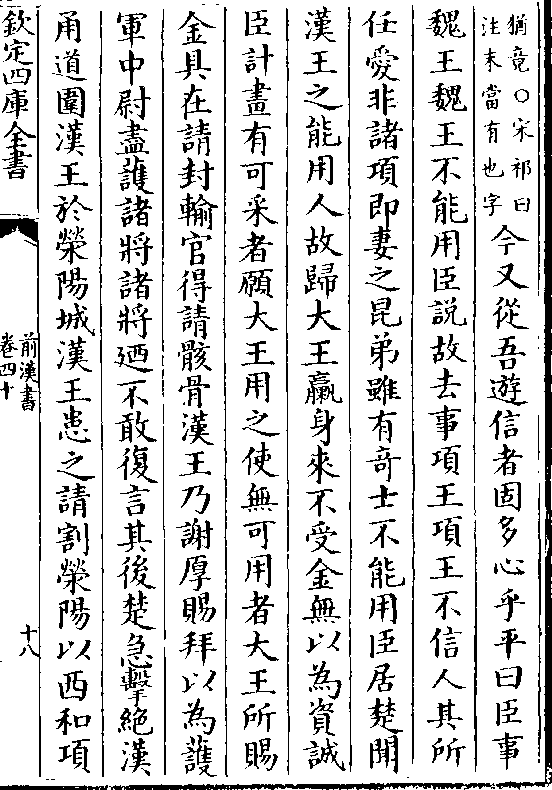 猶竟〇宋祁曰
注末當有也字
今又從吾遊信者固多心乎平曰臣事
魏王魏王不能用臣說故去事項王項王不信人其所
任愛非諸項即妻之昆弟雖有奇士不能用臣居楚聞
漢王之能用人故歸大王臝身來不受金無以為資誠
臣計畫有可采者願大王用之使無可用者大王所賜
金具在請封輸官得請骸骨漢王乃謝厚賜拜以為護
軍中尉盡護諸將諸將廼不敢復言其後楚急擊絕漢
甬道圍漢王於滎陽城漢王患之請割滎陽以西和項
欽定四庫全書
前漢書
卷四十
十八